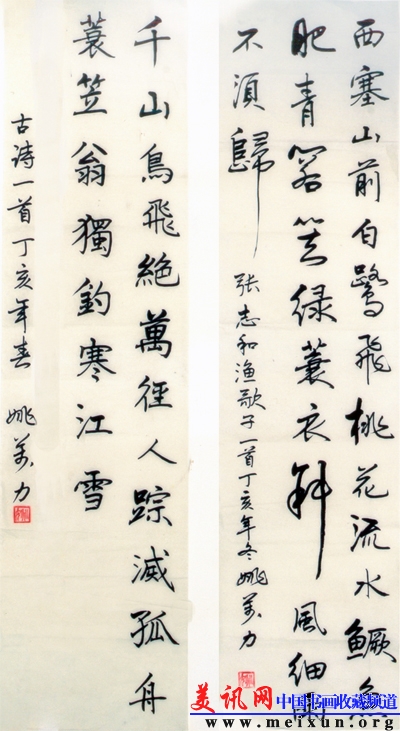 西塞山前白鹭飛桃花流水鳜魚
肥青箬笠绿蓑衣斜風细雨
不須歸
张志和渔歌子一首丁亥年冬姚萬力
千山鳥飛絶萬徑人踪滅孤舟
蓑笠翁獨釣寒江雪
古诗一首丁亥年春 姚萬力
美讯网 中国书画收藏频道
www.meixun.org